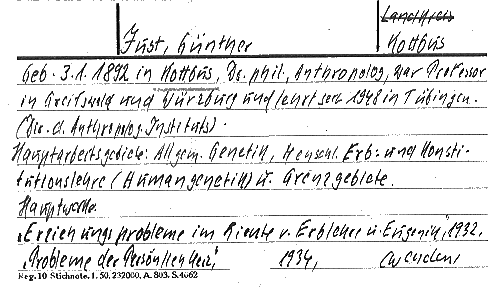 Landkreis
Just, Günther Kottbus
Geb. 3.1.1892 in Kottbus, Dr. phil., Anthropolog, war Professor
in Greifswald und Würzburg und lehrt seit 1948 in Tübingen.
(Dir. d. Anthropolog. Instituts).
Hauptarbeitsgebiete: Allgem. Genetik, Menschl. Erb- und Konsti-
tutionslehre (Humangenetik) u. Grenzgebiete.
Hauptwerke:
"Erziehungsprobleme im Lichte v. Erblehre u. Eugenik", 1932,
"Probleme der Persönlichkeit", 1934,
Reg. 10 Stichnote. 1. 50. 232000. A. 803. S. 4662